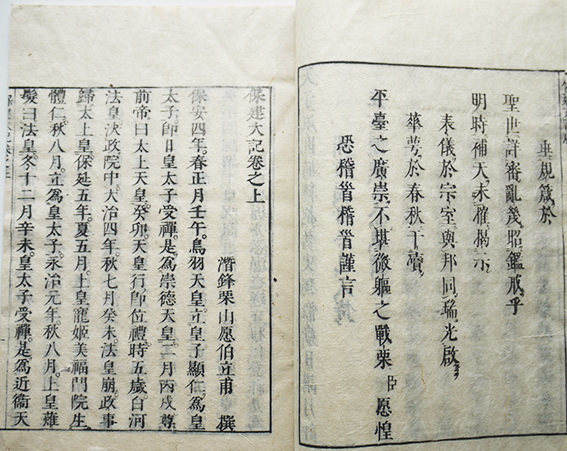 垂規箴於
聖世詳審亂幾昭鑑戒乎
明時補天未雅揭示
表儀於宗室與邦同瑞光啟
華萼於春秋干瀆
平臺之廣崇不堪微軀之戰栗臣愿惶
恐稽首稽首謹言
保建大記卷之上
潛鋒栗山愿伯立甫 撰
保安四年。春正月壬午。鳥羽天皇。立皇子顯仁。爲皇
太子。卽日皇太子受禪。是爲崇德天皇。二月丙戌。尊
前帝曰太上天皇。癸卯。天皇行卽位禮。時五歲。白河
法皇決政院中。大治四年秋七月癸未。法皇崩。政事
歸太上皇。保延五年。夏五月。上皇寵姬美福門院生
體仁。秋八月。立爲皇太子。永治元年秋八月。上皇薙
髮曰法皇。冬十二月辛未。皇太子受禪。是爲近衞天